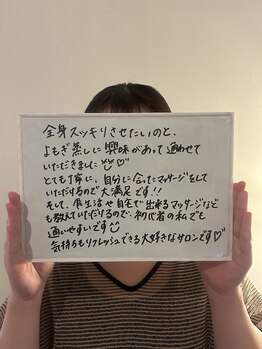 全身スッキリさせたいのと、
よもぎ蒸しに興味があって通わせて
いただきました♡
とても丁寧に、自分に合ったマッサージをして
いただけるので大満足です!!
そして、食生活や自宅で出来るマッサージなど
も教えていただけるので、初心者の私でも
通いやすいです
気持ちもリフレッシュできる大好きなサロンです♡